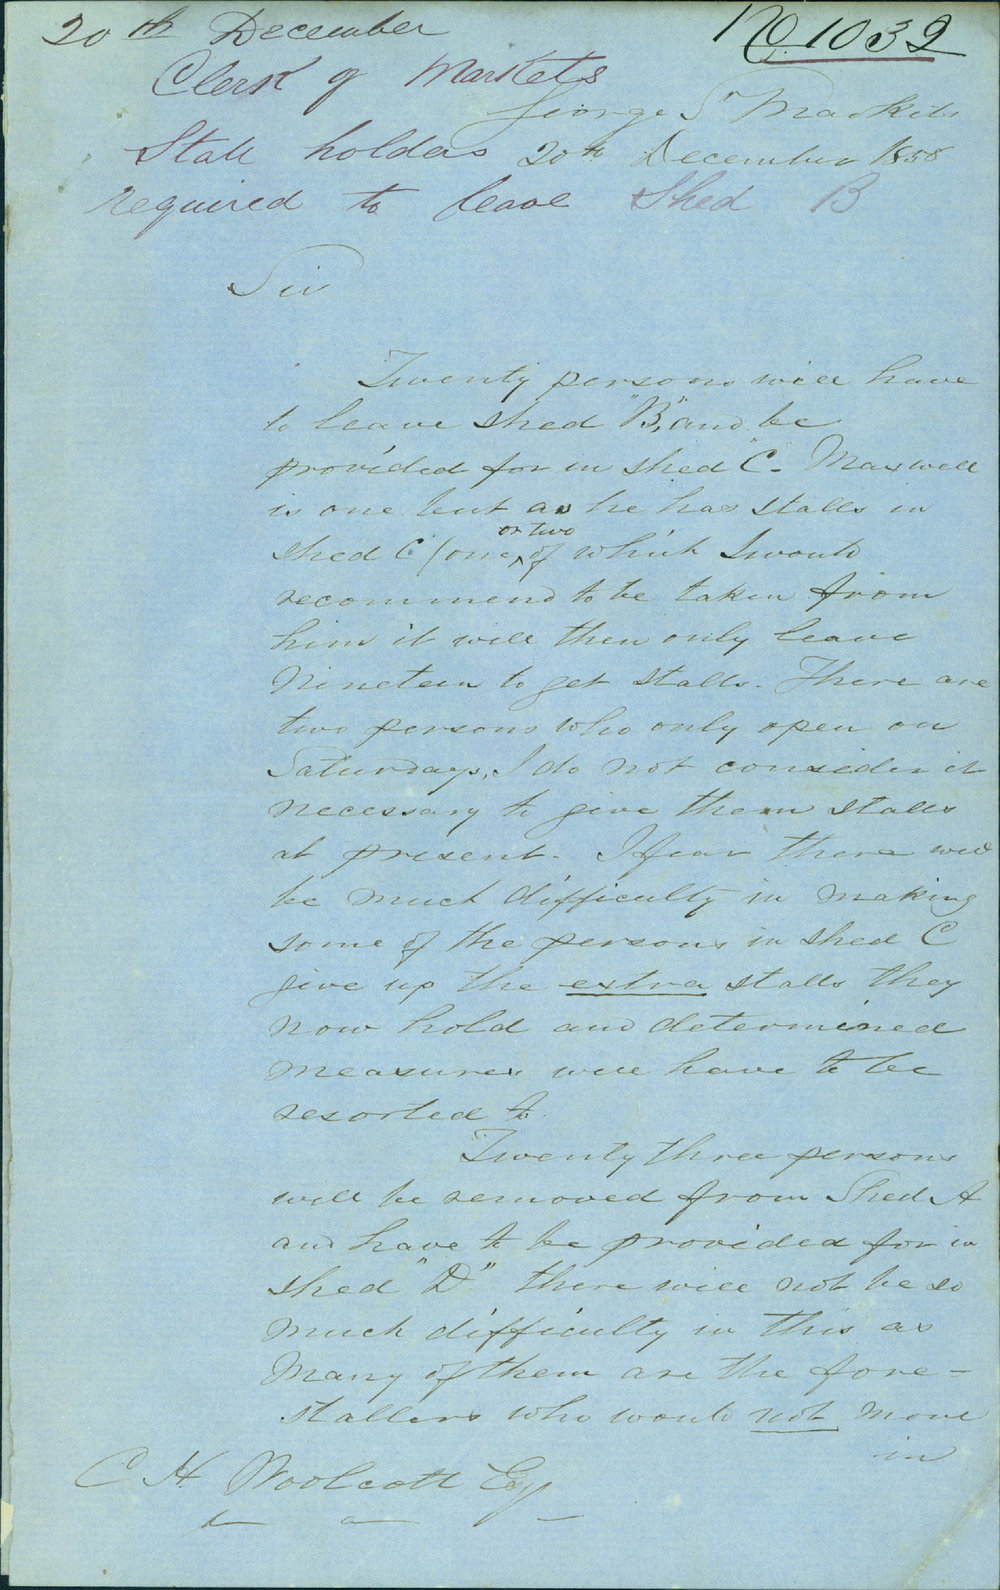 20th December
No 1032
Clerk of Markets
George St Markets
Stall holders
20th December 1858
required to leave Shed B
Sir
Twenty persons will have
to leave shed "B", and be
provided for in shed "C - Maxwell
is one but as he has stalls in
shed C (one or two of which I would
recommend to be taken from
him it will then only leave
Nineteen to get stalls. There are
two persons who only open on
Saturdays, I do not consider it
necessary to give them stalls
at present - I fear there will
be much difficulty in making
some of the persons in shed C
give up the extra stalls they
now hold and determined
measures will have to be
resorted to.
Twenty three persons
will be removed from Shed A
and have to be provided for in
shed "D" there will not be so
much difficulty in this as
Many of them are the fore-
stallers who would not move
in
C H Woolcott Esq